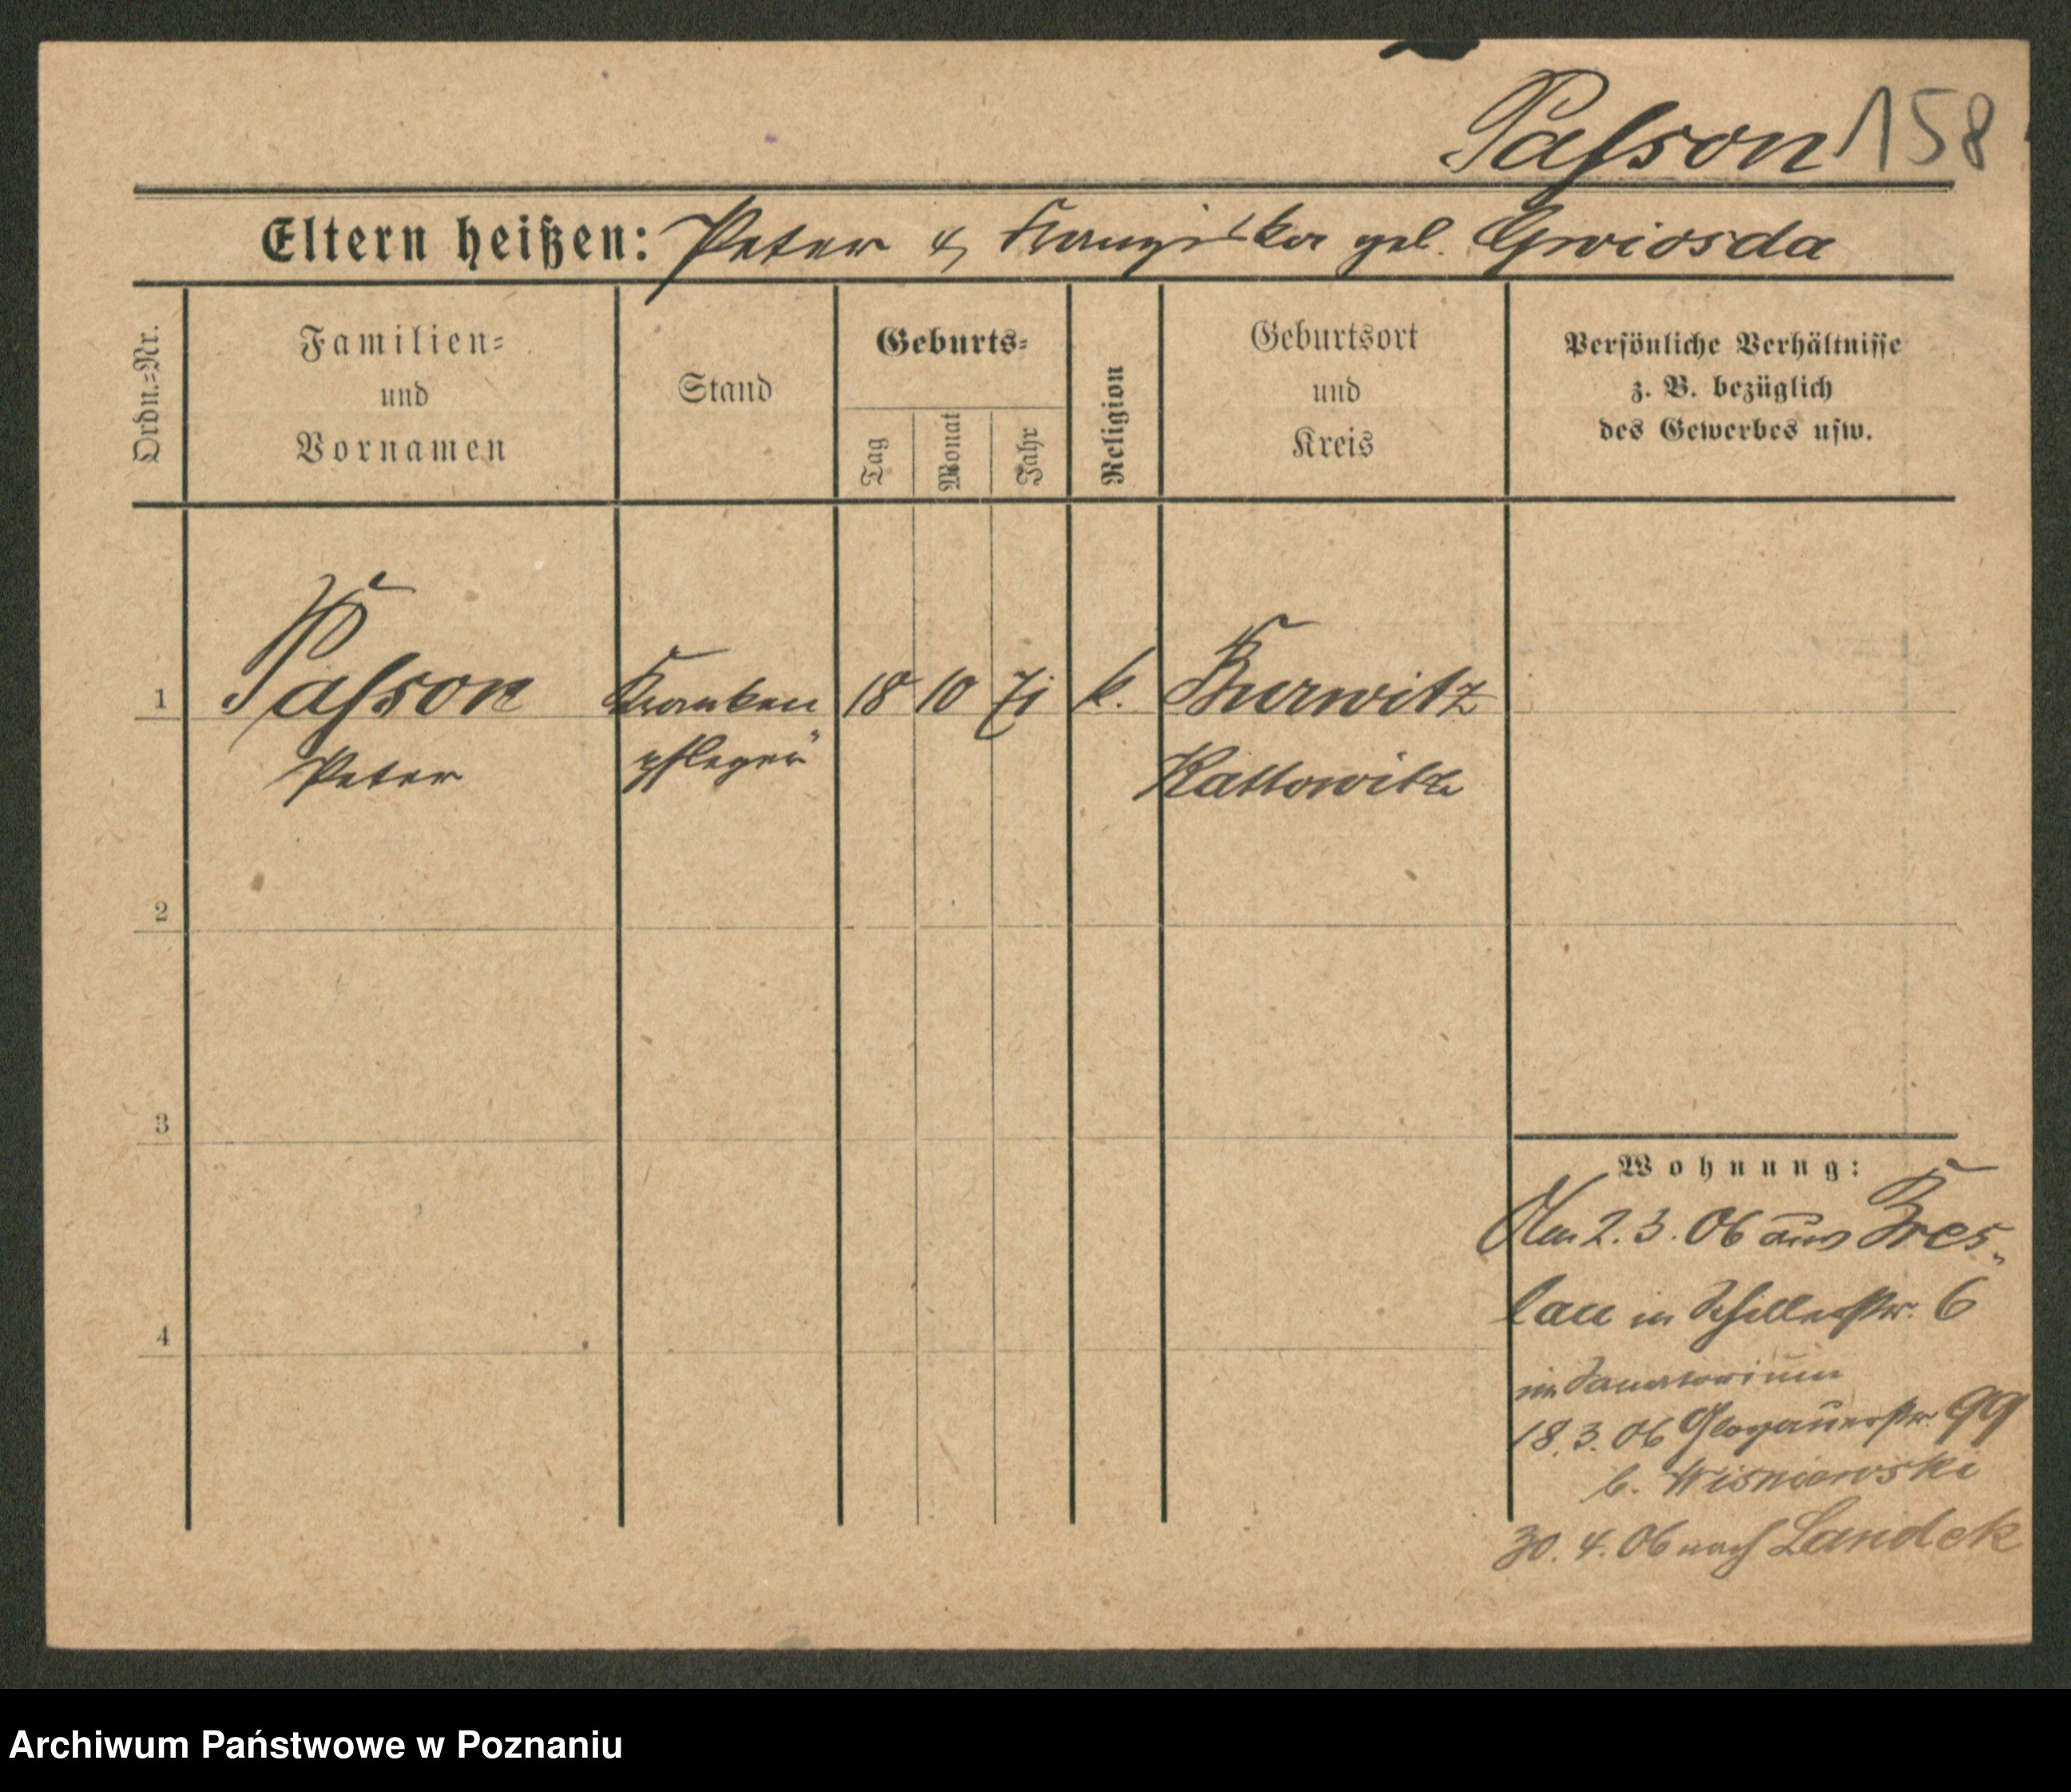 Paſson 158
Eltern heißen: Peter & Franziska geb. Gwiosda
Ordn.=Nr.
Familien=
und
Vornamen
Stand
Geburts=
Tag
Monat
Jahr
Religion
Geburtsort
und
Kreis
Perſönliche Verhältniſſe
z. B. bezüglich
des Gewerbes uſw.
1 Paſson Kranken 18 10 71 k.
Peter pfleger Kattowitz
2
3
4
Wohnung:
2. 3. 06 aus Bres-
lau in Schillerstr. 6
im Sanatorium
18. 3. 06 Glogauerstr. 99
b. Wisniewski
30. 4. 06 nach Landek
Archiwum Państwowe w Poznaniu